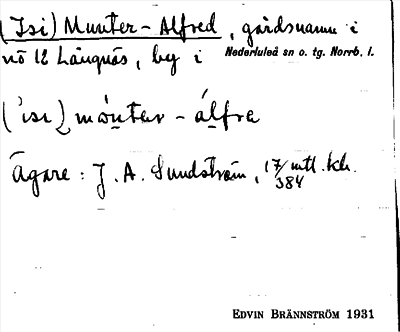 (Isi) Munter-Alfred, gårdsnamn i
nö 12 Långnäs, by i Nederluleå sn o. tg. Norrb. l.
('isi) mònter-álfre
Ägare: J. A. Sundström, 17/384 mtl. kr.
EDVIN BRÄNNSTRÖM 1931